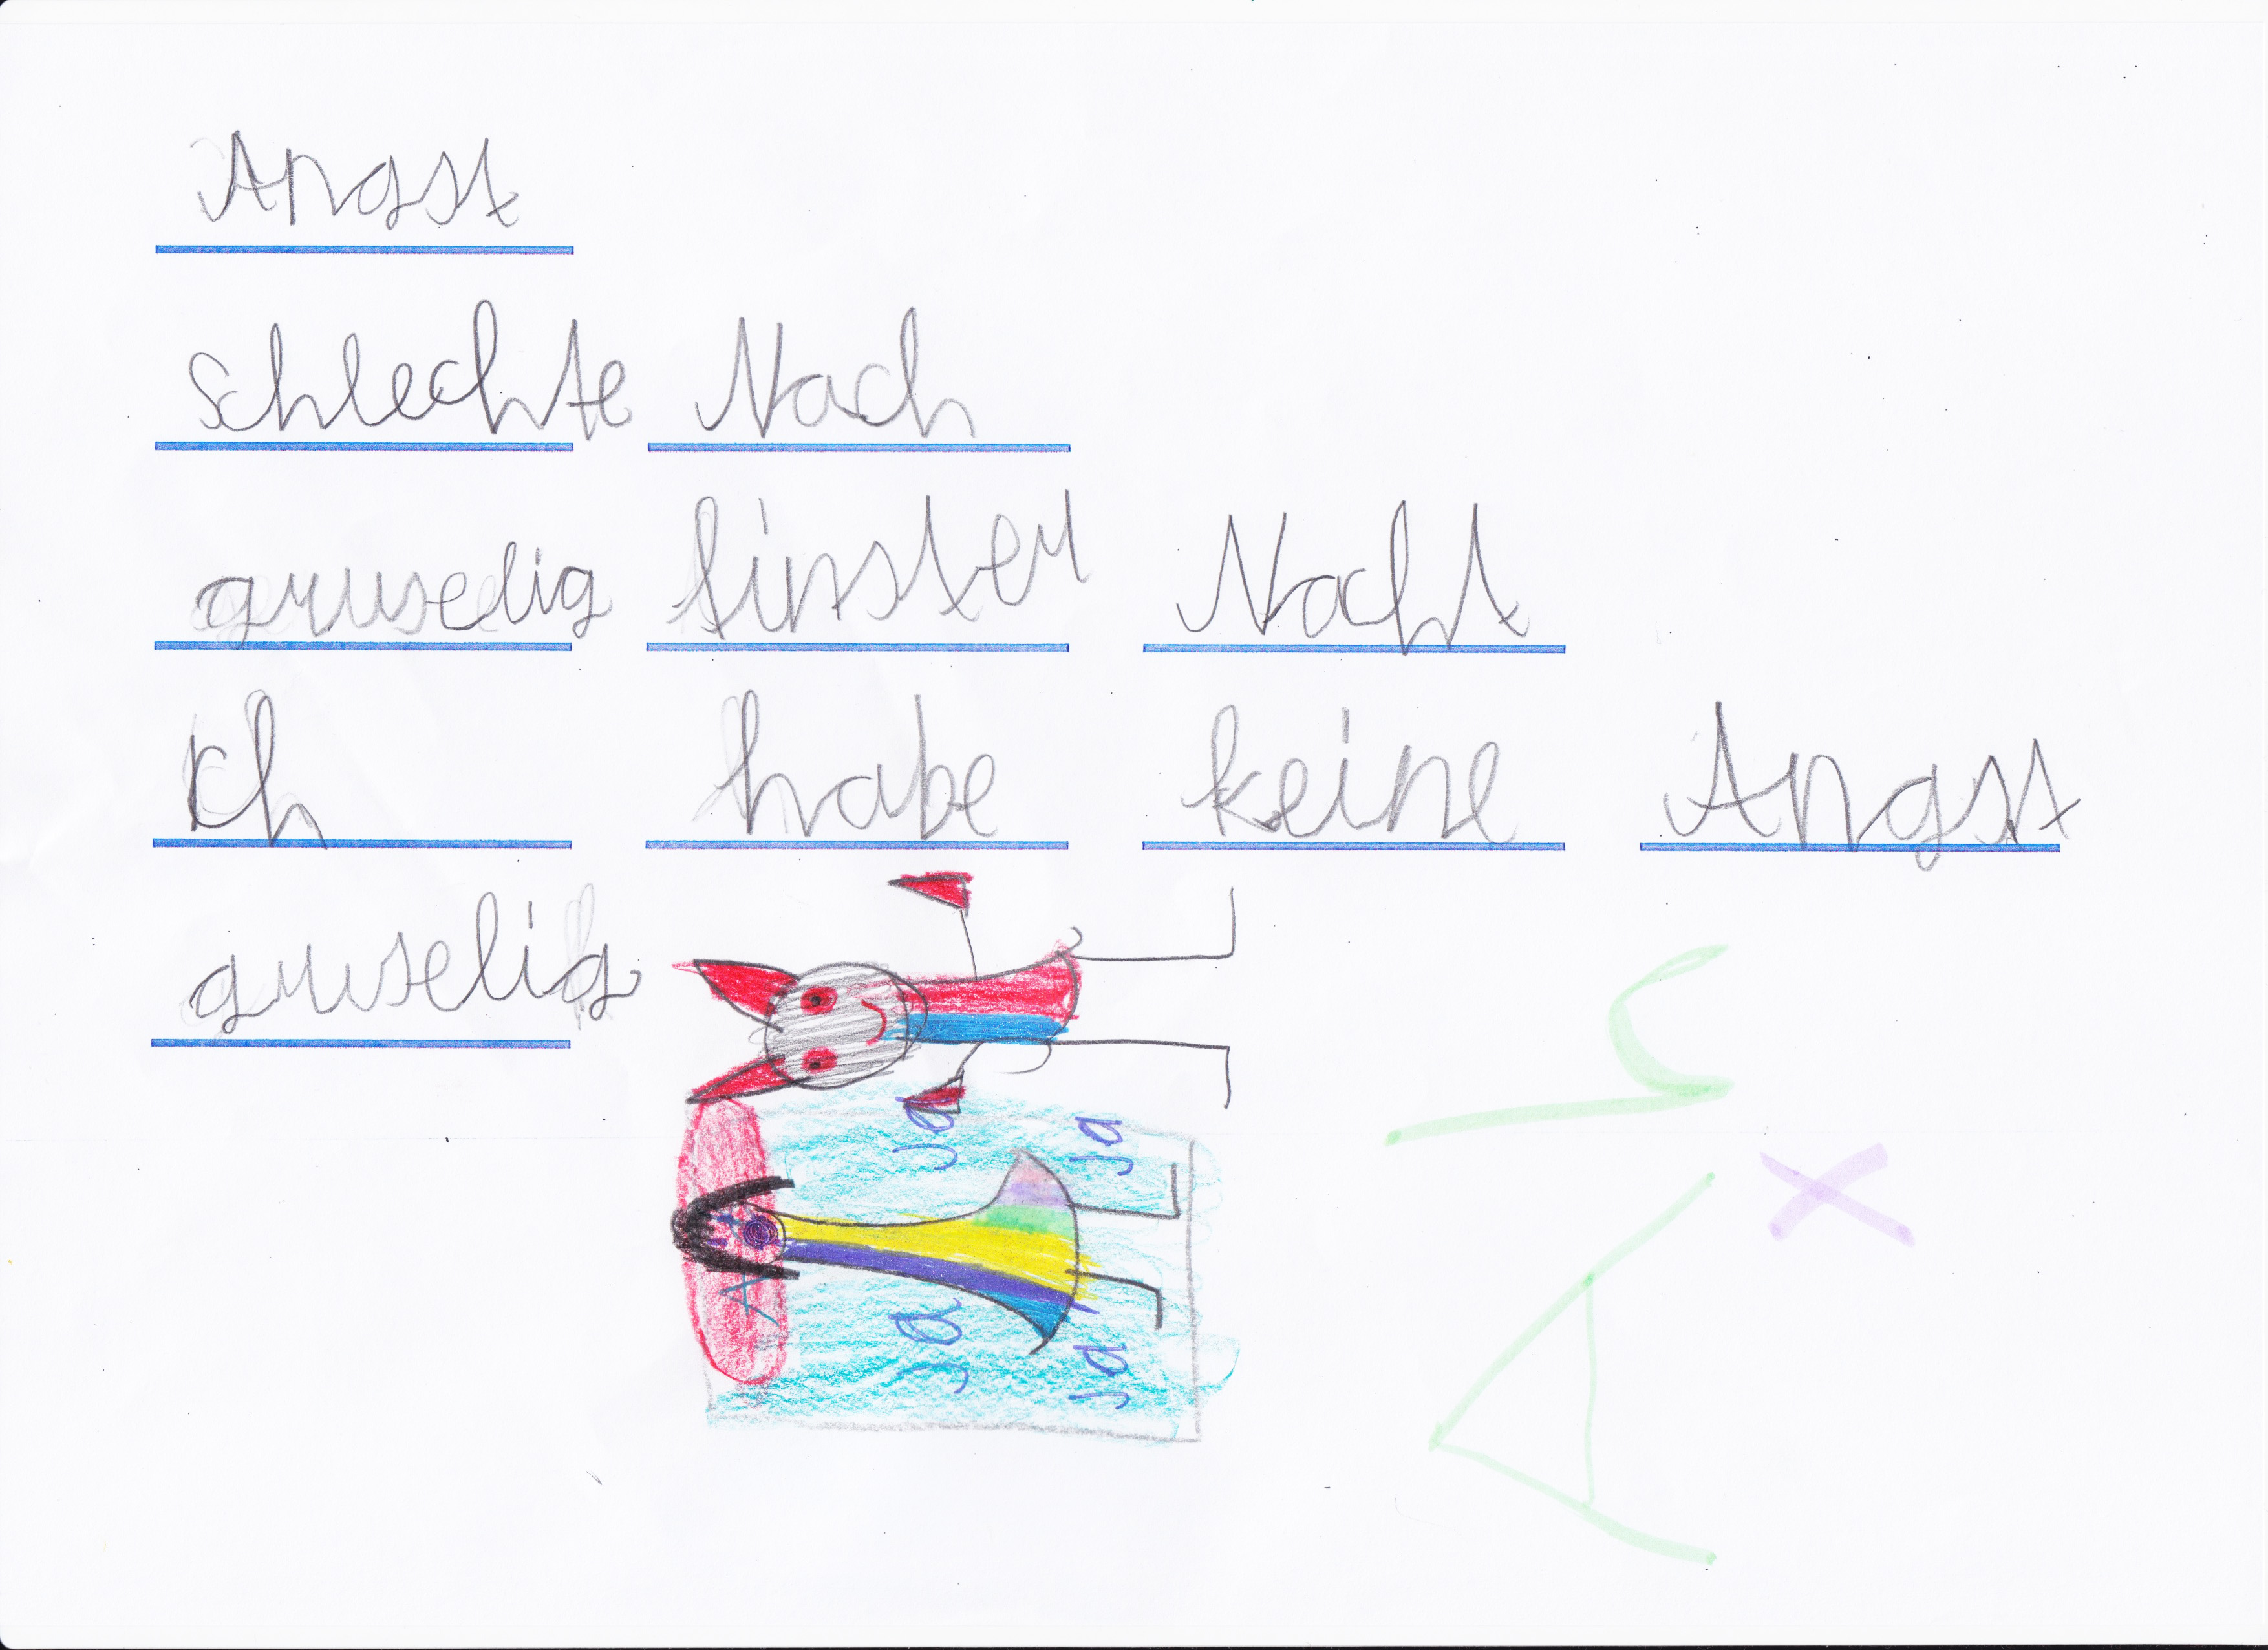 Angst
schlechte Nach
gruselig finster Nacht
Ich habe keine Angst
gruselig
Ja Ja
A
Ja Ja